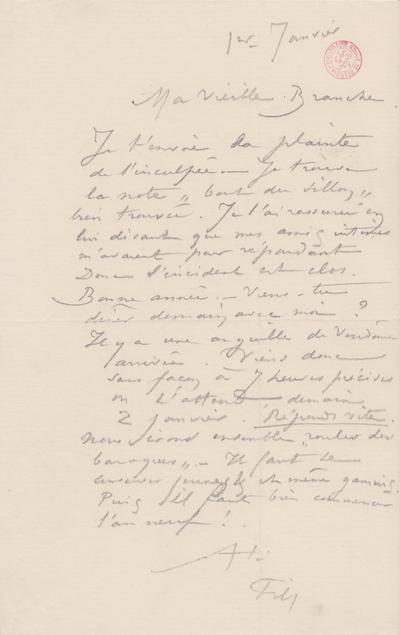 1er Janvier
Ma Vieille Branche
Je t'envoie la plainte
de l'inculpée. Je trouve
la note „ bout du sillon „
bien trouvée. Je l'ai rassurée en
lui disant que mes amis intimes
m'avaient pour répondant
Donc l'incident est clos.
Bonne année. - Viens-tu
dîner demain avec moi ?
Il y a une anguille de Vendôme
arrivée. Viens donc
sans façon à 7 heures précises
on t'attend demain
2 janvier. Réponds vite.
nous irons ensemble „ rouler des
baroques „ - Il faut se
conserver jeunes et même gamins.
Puis il faut bien commencer
l'an neuf !